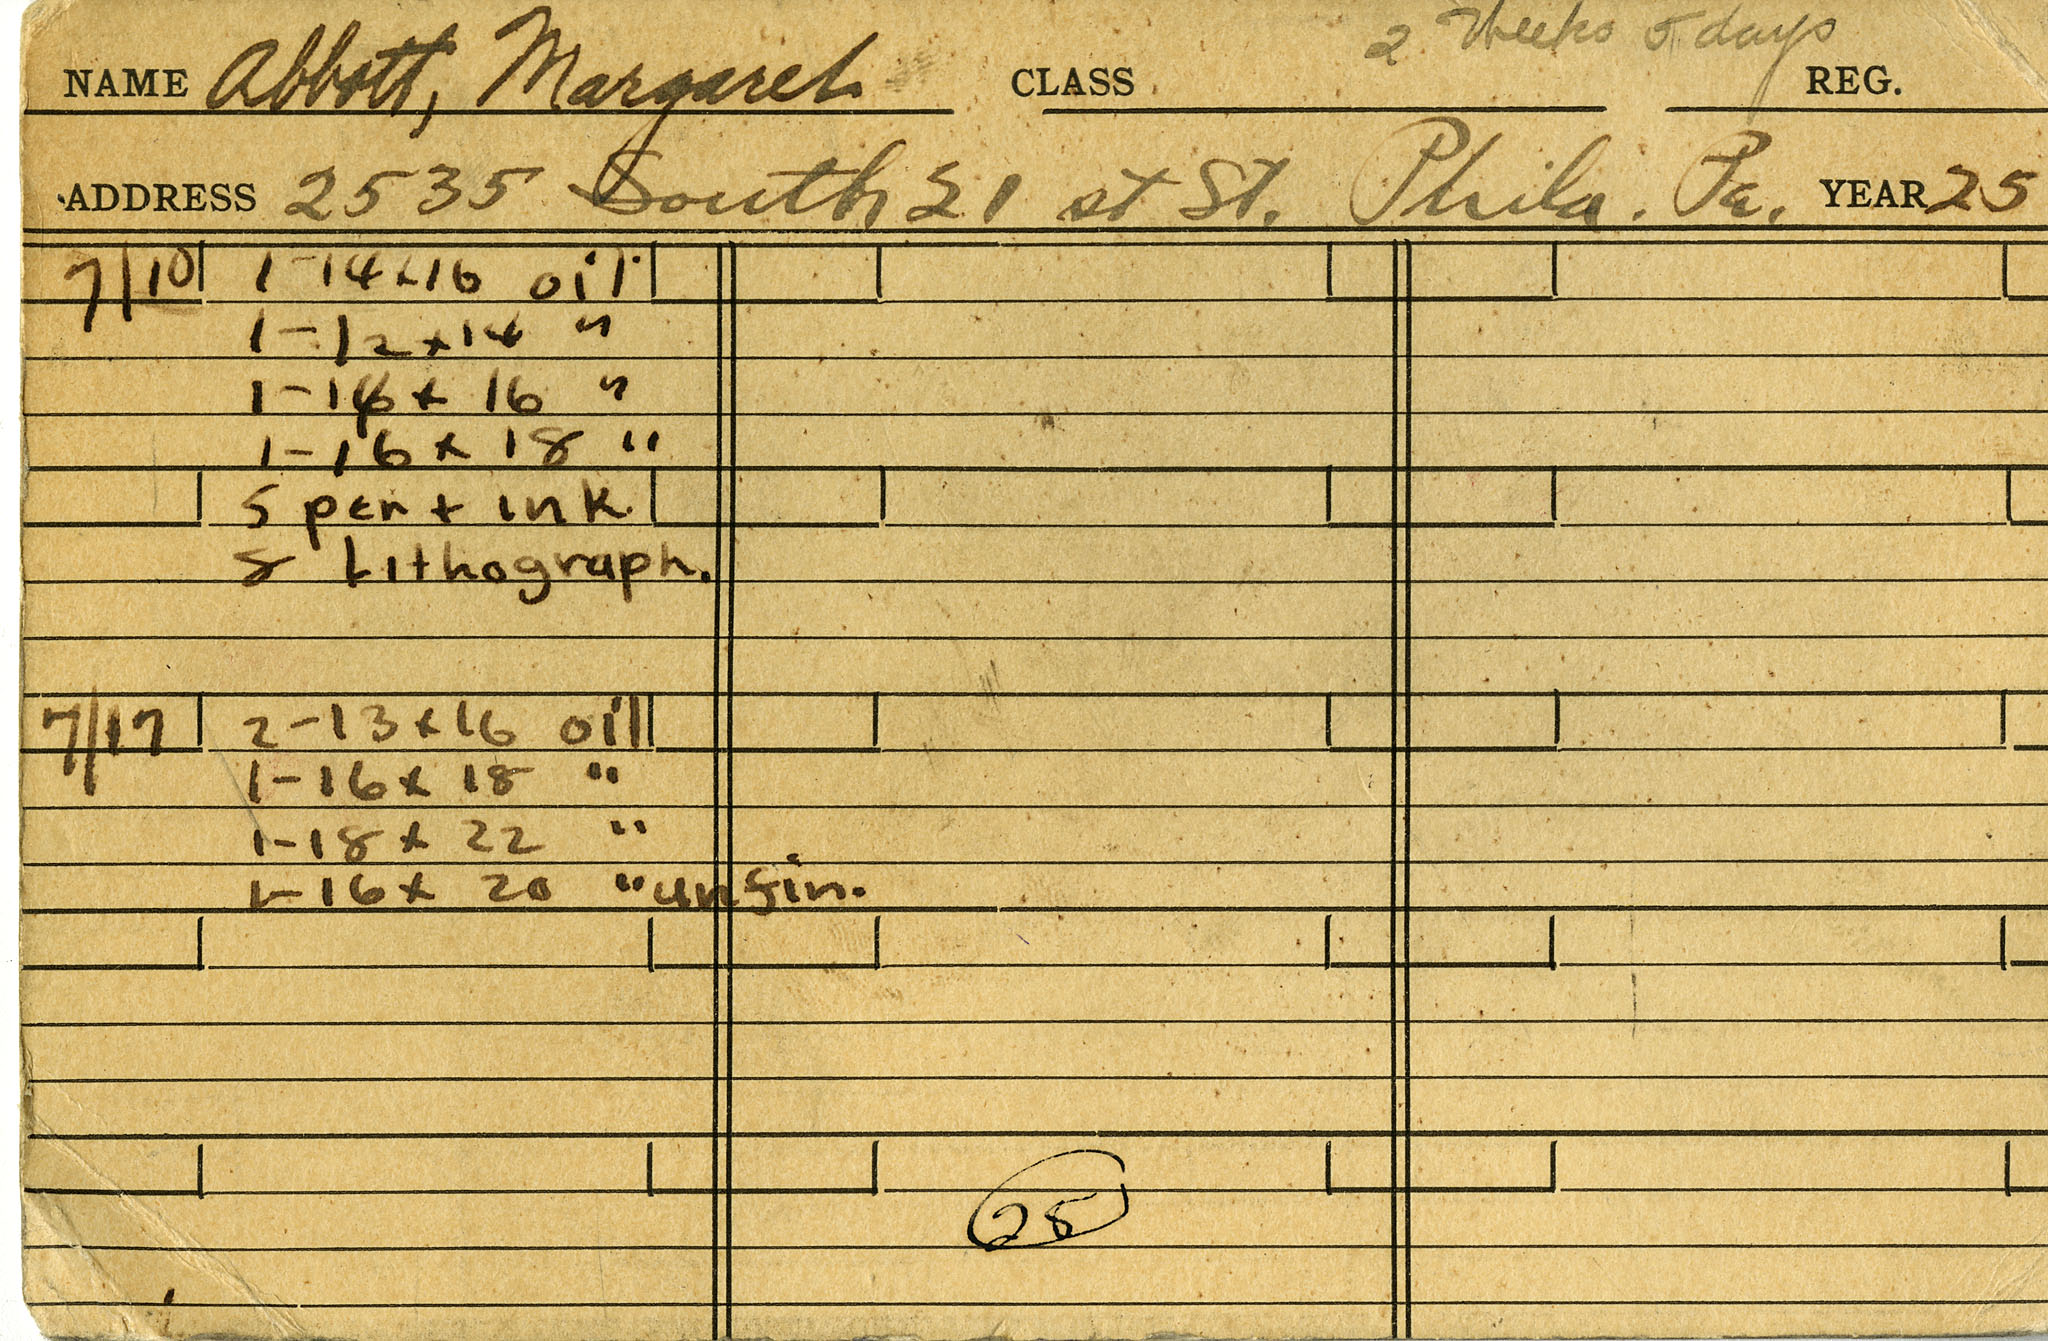 2 Weeks 5 days
NAME Abbott, Margaret CLASS REG.
ADDRESS 2535 South 21 st St. Phila. Pa. YEAR 25
7/10 1-14x16 oil
1-12x14 "
1-14x 16 "
1-16x 18 "
5 pen + ink
8 Lithograph.
7/17 2-13x16 oil
1-16x 18 "
1-18x 22 "
1-16x 20 " unfin.
28